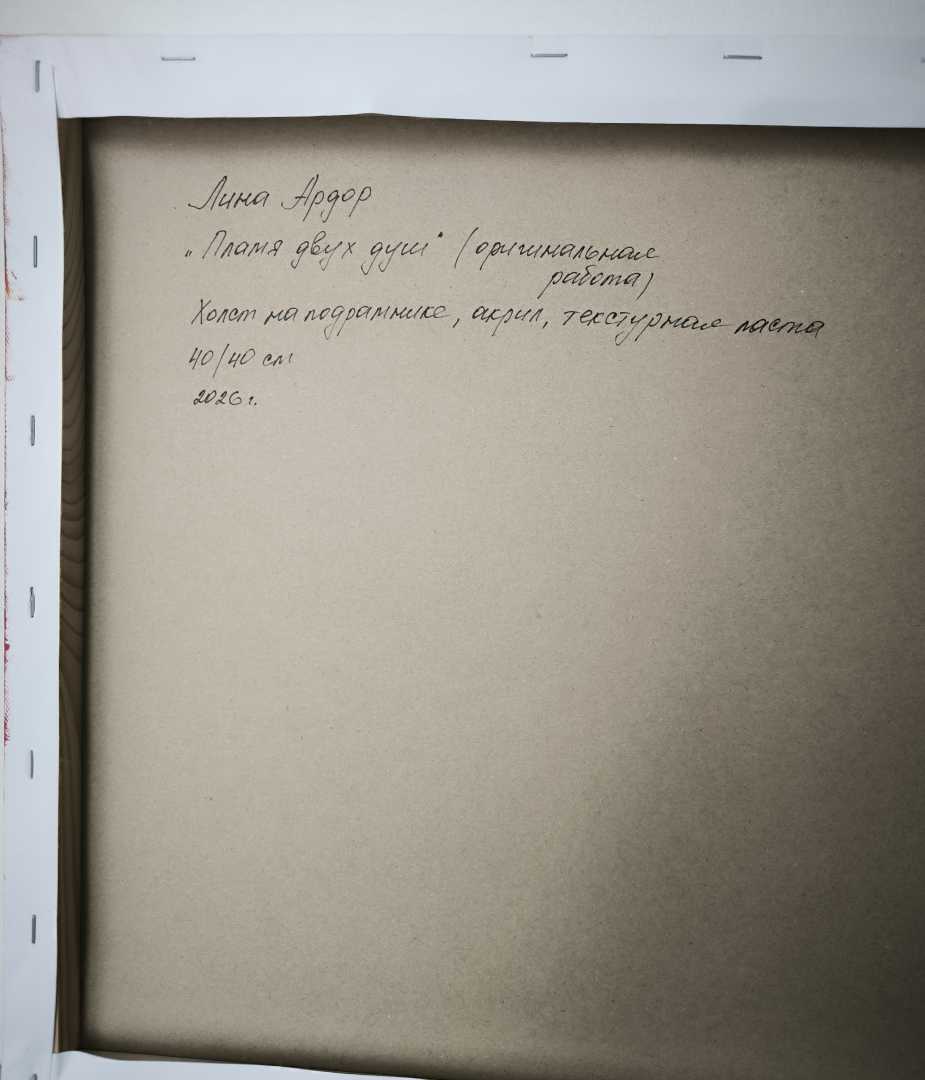 Лина Ардор
"Пламя двух душ" (оригинальная
работа)
Холст на подрамнике, акрил, текстурная паста
40/40 см
2026 г.